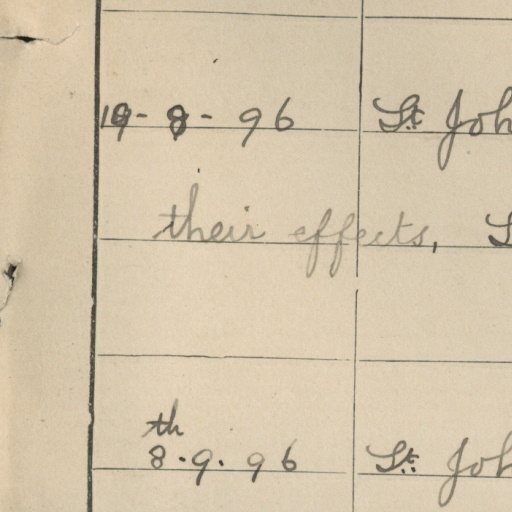 19-8-96 St. Joh
their effects, S
th
8.9.96 St. Joh